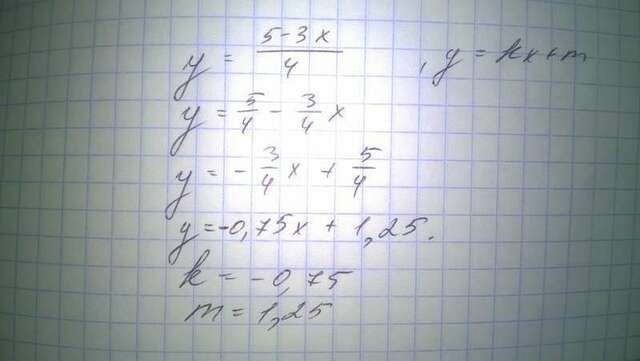 y = (5-3x)/4 , y = kx+m
y = 5/4 - 3/4 x
y = - 3/4 x + 5/4
y = -0,75x + 1,25.
k = -0,75
m = 1,25